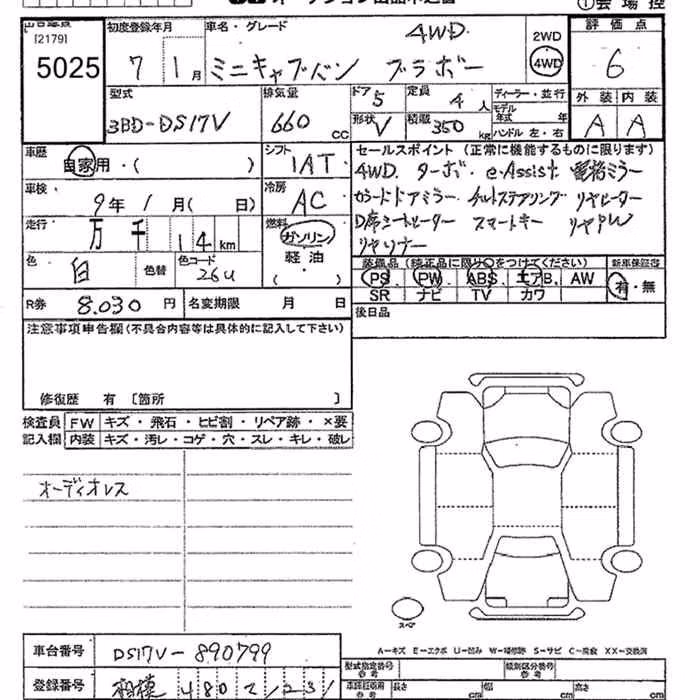 [2179]
5025
初度登録年月 7 1月
車名・グレード 4WD
ミニキャブバン ブラボー
2WD
4WD
評価点
6
型式 3BD-DS17V
排気量 660 cc
ドア 5 定員 4 人
形状 V 積載 350 kg
ディーラー・並行
モデル年式 年
ハンドル 左・右
外装 内装
A A
車歴 自家用・( )
シフト 1AT
車検 9年 1月( 日)
冷房 AC
走行 万 千 14 km
燃料 ガソリン
軽油
( )
色 白 色替 色コード 26U
R券 8.030 円 名変期限 月 日
セールスポイント (正常に機能するものに限ります)
4WD. ターボ. e-Assist. 電格ミラー
カラードドアミラー. チルトステアリング リヤヒーター
D席シートヒーター スマートキー リヤPW
リヤソナー
装備品(純正品に限り〇をつけてください) 新車保証書
PS. PW. ABS. エアB. AW
SR ナビ TV カワ
有・無
後日品
注意事項申告欄(不具合内容等は具体的に記入して下さい)
修復歴 有 [箇所 ]
検査員 FW キズ・飛石・ヒビ割・リペア跡・×要
記入欄 内装 キズ・汚レ・コゲ・穴・スレ・キレ・破レ
オーディオレス
スペア
A-キズ E-エクボ U-凹み W-補修跡 S-サビ C-腐食 XX-交換済
車台番号 DS17V-890799
登録番号 相模 480 ク 1231
型式指定番号 参考
類別区分番号 参考
長さ cm 幅 cm 高さ cm